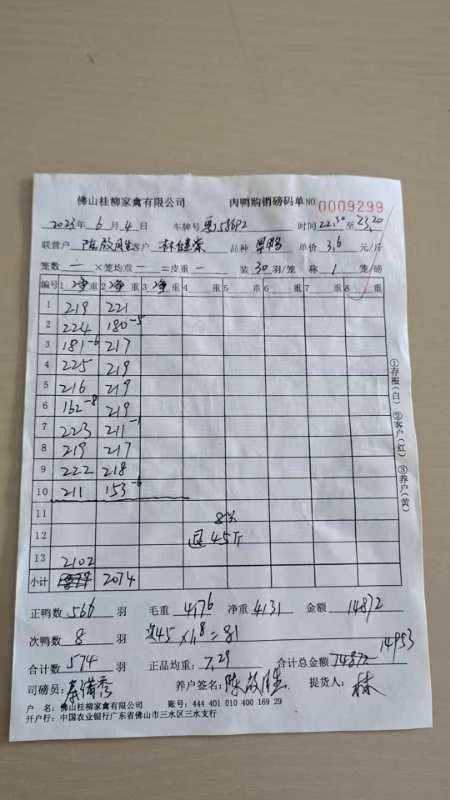 佛山桂柳家禽有限公司 肉鸭购销磅码单 NO 0009299
2023年 6月 4日 车牌号 58612 时间 22.30 至 23.20
联营户 客户 林健荣 品种 单价 3.6 元/斤
笼数 一 ×笼均重 一 =皮重 一 装 30 羽/笼 称 1 笼/磅
编号 1 净重 2 净重 3 净重 4 重 5 重 6 重 7 重 8 重
1 219 221
2 224 180-5
3 181-6 217
4 225 219
5 216 219
6 162-8 219
7 223 211-1
8 219 217
9 222 218
10 211 153
11 8%
12 退45斤
13 2102
小计 2074
正鸭数 566 羽 毛重 4176 净重 4131 金额 14872
次鸭数 8 羽 次45×1.8=81
14953
合计数 574 羽 正品均重: 7.29 合计总金额 14872
司磅员: 养户签名: 提货人: 林
户 名: 佛山桂柳家禽有限公司 账号: 444 401 010 400 169 29
开户行: 中国农业银行广东省佛山市三水区三水支行
①存根(白) ②客户(红) ③养户(黄)